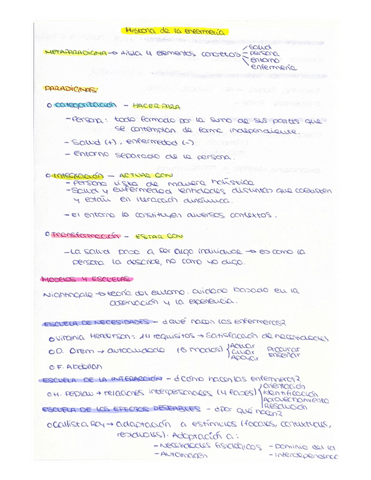 Historia de la enfermería
METAPARADIGMA → 4 elementos concretos
salud
persona
entorno
enfermería
PARADIGMAS
o categorización - HACER PARA
- Persona: todo formado por la suma de sus partes que
se contemplan de forma independiente.
- Salud (+), enfermedad (-)
- Entorno separado de la persona.
o Integración - ACTUAR CON
- Persona vista de manera holística
- Salud y enfermedad entidades distintas que coexisten
y están en interacción dinámica.
- El entorno lo constituyen diversos contextos.
o Transformación - ESTAR CON
- La salud pasa a ser algo individual → es como la
persona la describe, no como yo digo.
MODELOS Y ESCUELAS
Nightingale → teoría del entorno. cuidado basado en la
observación y la experiencia.
ESCUELA DE NECESIDADES - ¿qué hacen las enfermeras?
o Virginia Henderson: 14 requisitos → satisfacción de necesidades
o D. Orem → autocuidado (5 modos)
Actuar
Guiar
Apoyar
Procurar
enseñar
o F. Abdellah
ESCUELA DE LA INTERACCIÓN - ¿cómo hacen las enfermeras?
o H. Peplau → relaciones interpersonales (4 fases)
orientación
Identificación
Aprovechamiento
Resolución
ESCUELA DE LOS EFECTOS DESEABLES - ¿por qué hacen?
o Callista Roy → adaptación a estímulos (focales, contextuales,
residuales). Adaptación a:
- Necesidades fisiológicas
- Dominio del rol
- Autoimagen
- Interdependencia